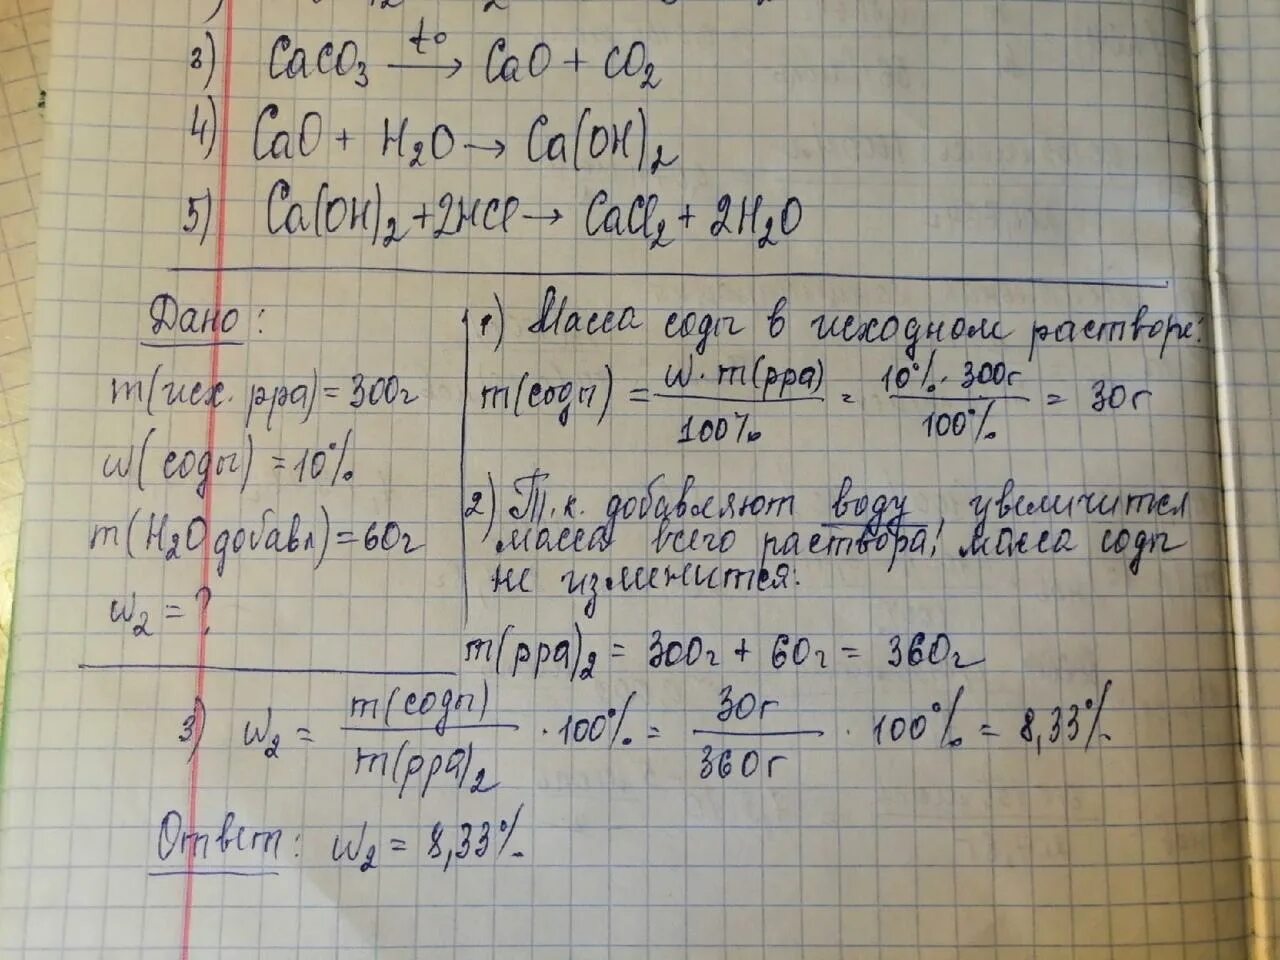 3) CaCO₃ —t°→ CaO + CO₂
4) CaO + H₂O → Ca(OH)₂
5) Ca(OH)₂ + 2HCl → CaCl₂ + 2H₂O
Дано:
m(исх. рра) = 300г
w(соды) = 10%
m(H₂O добавл) = 60г
w₂ = ?
1) Масса соды в исходном растворе:
m(соды) = w · m(рра) / 100% = 10% · 300г / 100% = 30г
2) Т.к. добавляют воду, увеличится
масса всего раствора, масса соды
не изменится:
m(рра)₂ = 300г + 60г = 360г
3) w₂ = m(соды) / m(рра)₂ · 100% = 30г / 360г · 100% = 8,33%
Ответ: w₂ = 8,33%